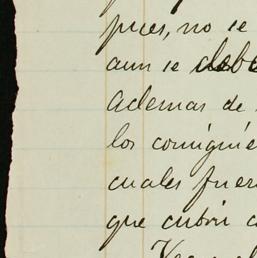 pues, no se
aun se debe
Ademas de
los consiguie
cuales fuer
que cubrir